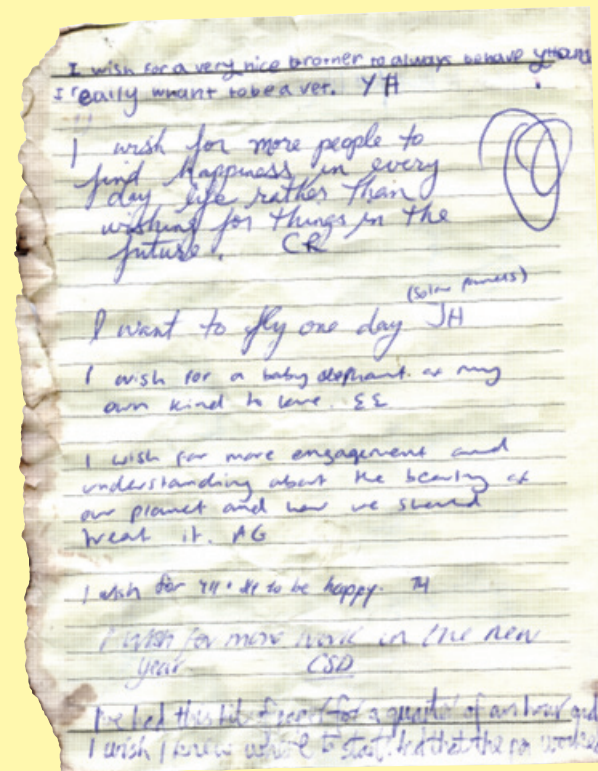 I wish for a very nice brother to always behave
I really whant to be a vet. YH
I wish for more people to
find happiness in every
day life rather than
wishing for things in the
future. CR
(Solar panels)
I want to fly one day JH
I wish for a baby elephant of my
own kind to love. EE
I wish for more engagement and
understanding about the beauty of
our planet and how we should
treat it. AG
I wish for YH + JH to be happy. TH
I wish for more work in the new
year CSD
I've had this bit of paper for a quarter of an hour and
I wish I knew where to start. And that the pen worked